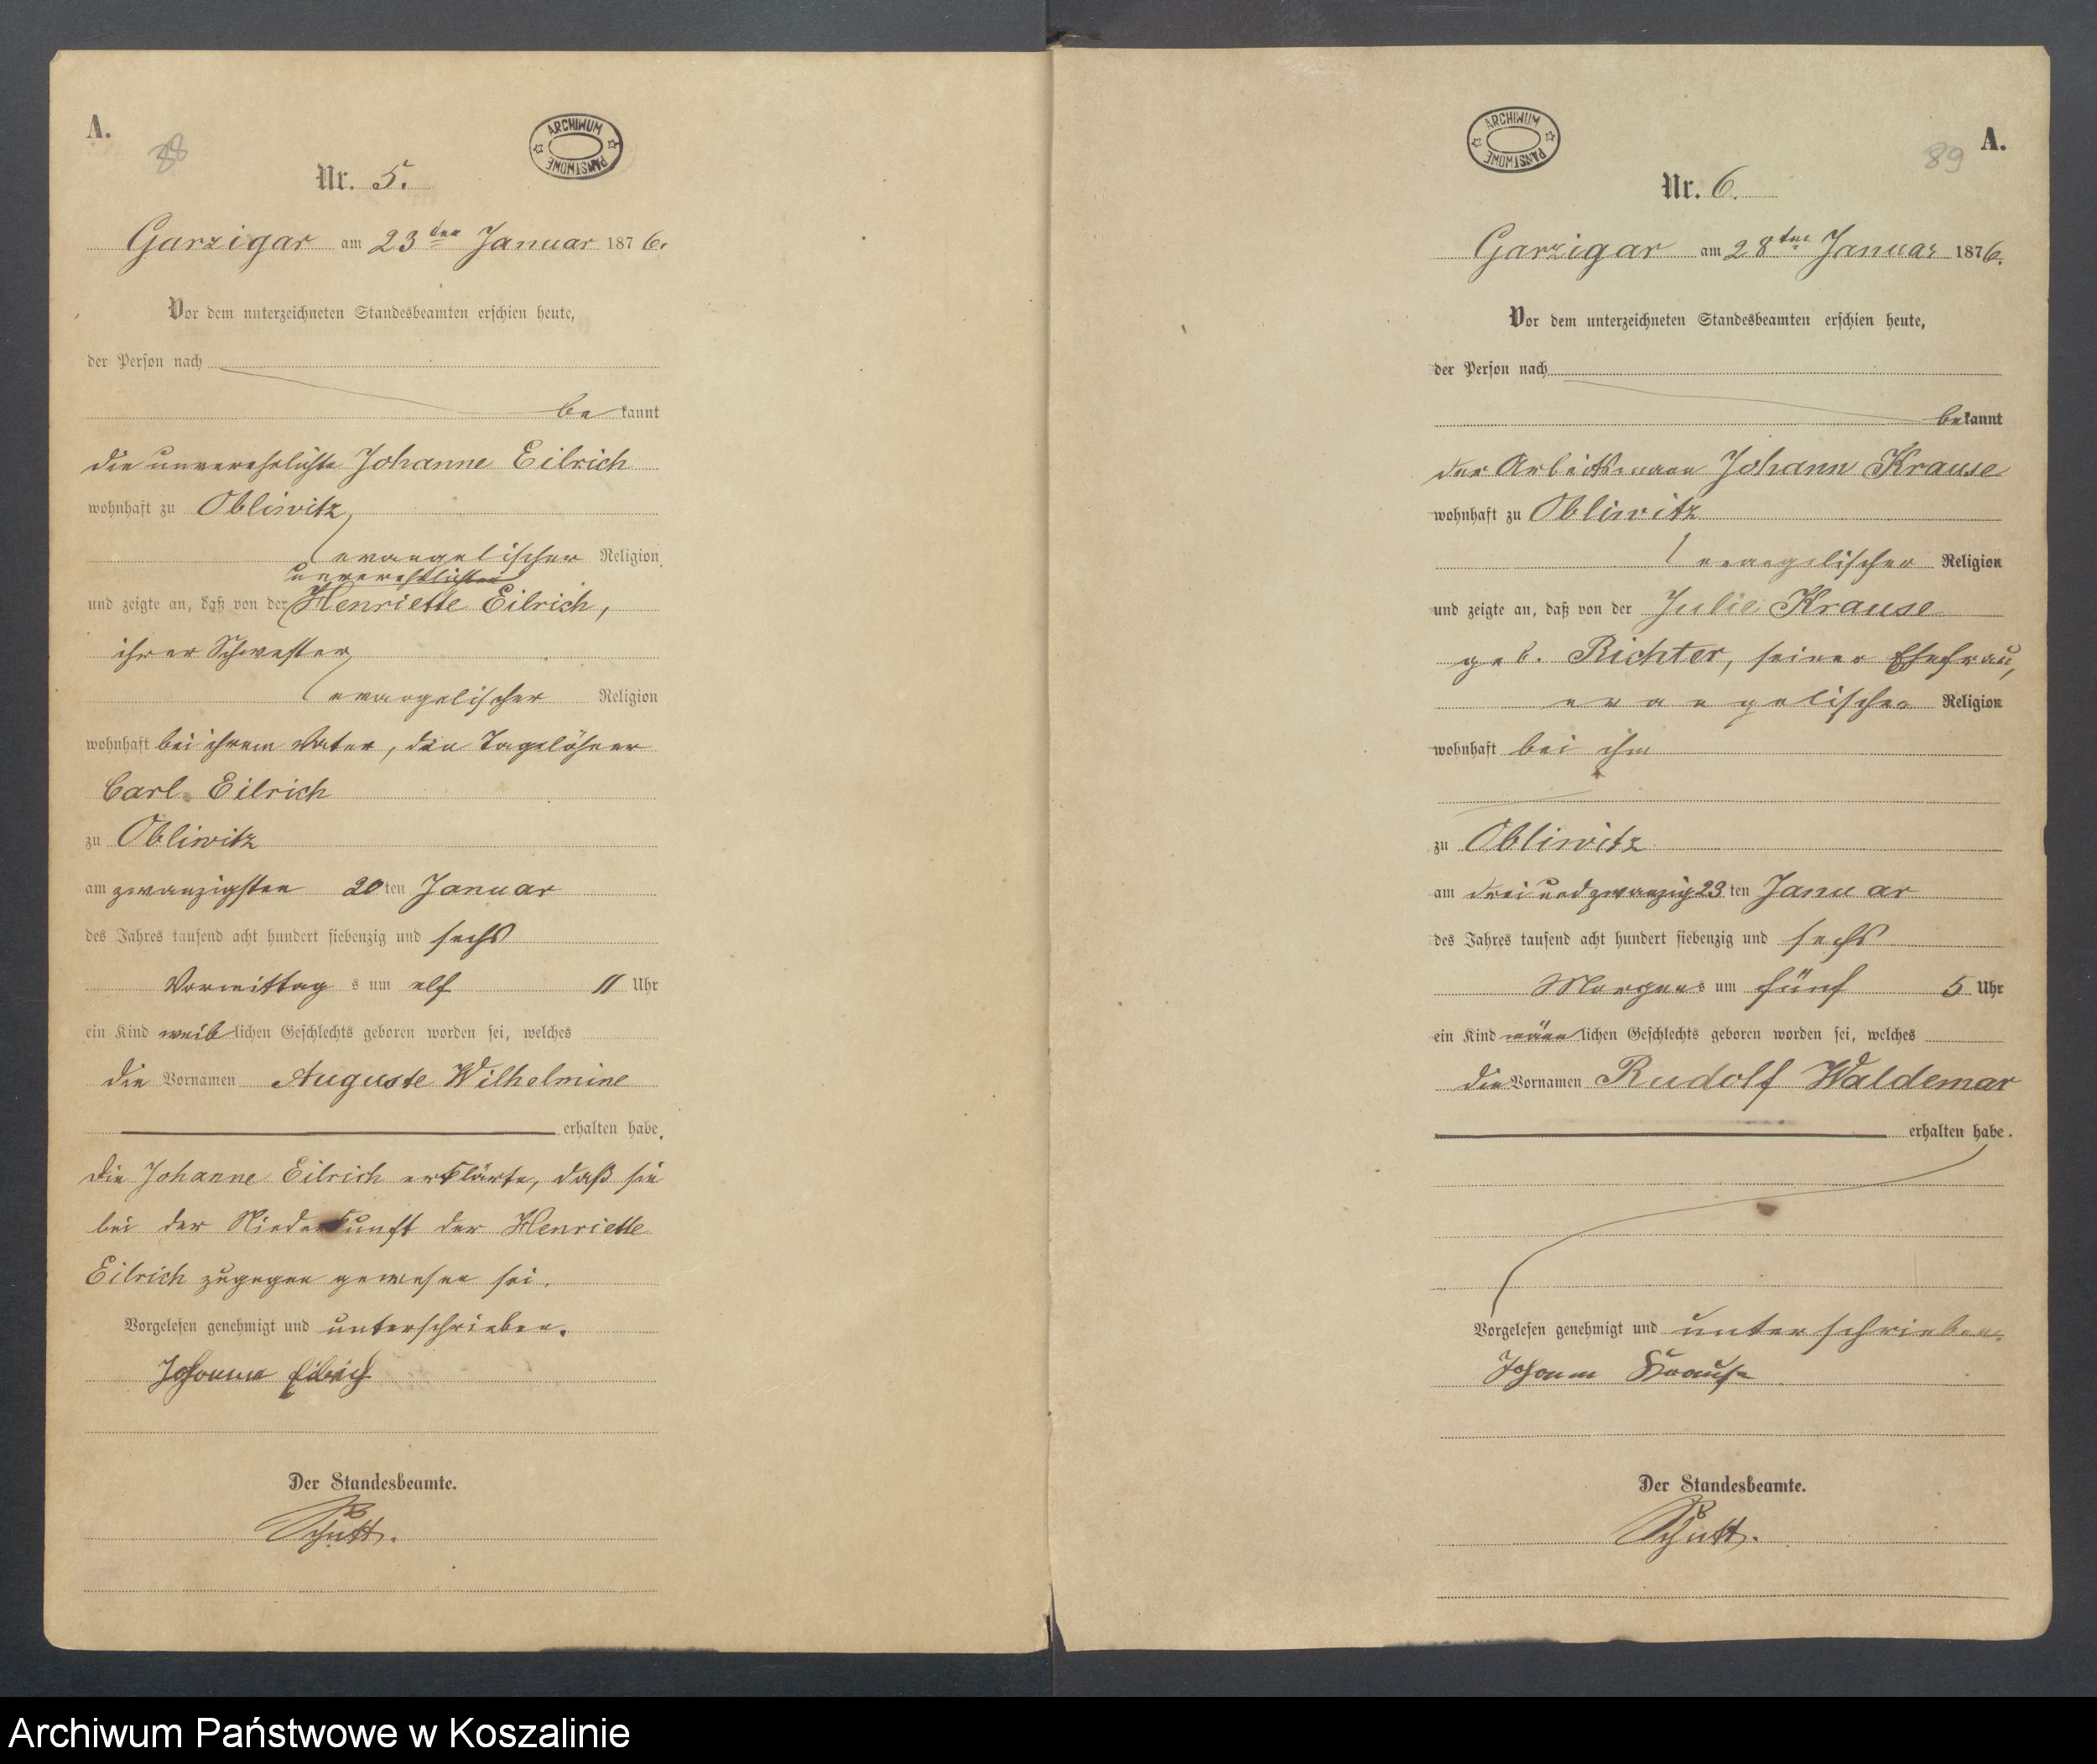 A.
88
ARCHIWUM PAŃSTWOWE
Nr. 5.
Garzigar am 23ten Januar 1876.
Vor dem unterzeichneten Standesbeamten erschien heute,
der Person nach
bekannt
die unverehelichte Johanne Eilrich
wohnhaft zu Obliwitz,
evangelischer Religion,
unverehelichten
und zeigte an, daß von der Henriette Eilrich,
ihrer Schwester,
evangelischer Religion
wohnhaft bei ihrem Vater, den Tagelöhner
Carl Eilrich
zu Obliwitz
am zwanzigsten 20ten Januar
des Jahres tausend acht hundert siebenzig und sechs
Vormittags um elf 11 Uhr
ein Kind weiblichen Geschlechts geboren worden sei, welches
die Vornamen Auguste Wilhelmine
erhalten habe.
Die Johanne Eilrich erklärte, daß sie
bei der Niederkunft der Henriette
Eilrich zugegen gewesen sei.
Vorgelesen genehmigt und unterschrieben.
Johanne Eilrich
Der Standesbeamte.
Schütt.
ARCHIWUM PAŃSTWOWE
A.
89
Nr. 6.
Garzigar am 28ten Januar 1876.
Vor dem unterzeichneten Standesbeamten erschien heute,
der Person nach
bekannt
der Arbeitsmann Johann Krause
wohnhaft zu Obliwitz
evangelischer Religion
und zeigte an, daß von der Julie Krause
geb. Richter, seiner Ehefrau,
evangelischer Religion
wohnhaft bei ihm
zu Obliwitz
am drei und zwanzig 23ten Januar
des Jahres tausend acht hundert siebenzig und sechs
Morgens um fünf 5 Uhr
ein Kind männlichen Geschlechts geboren worden sei, welches
die Vornamen Rudolf Waldemar
erhalten habe.
Vorgelesen genehmigt und unterschrieben.
Johann Krause
Der Standesbeamte.
Schütt.
Archiwum Państwowe w Koszalinie